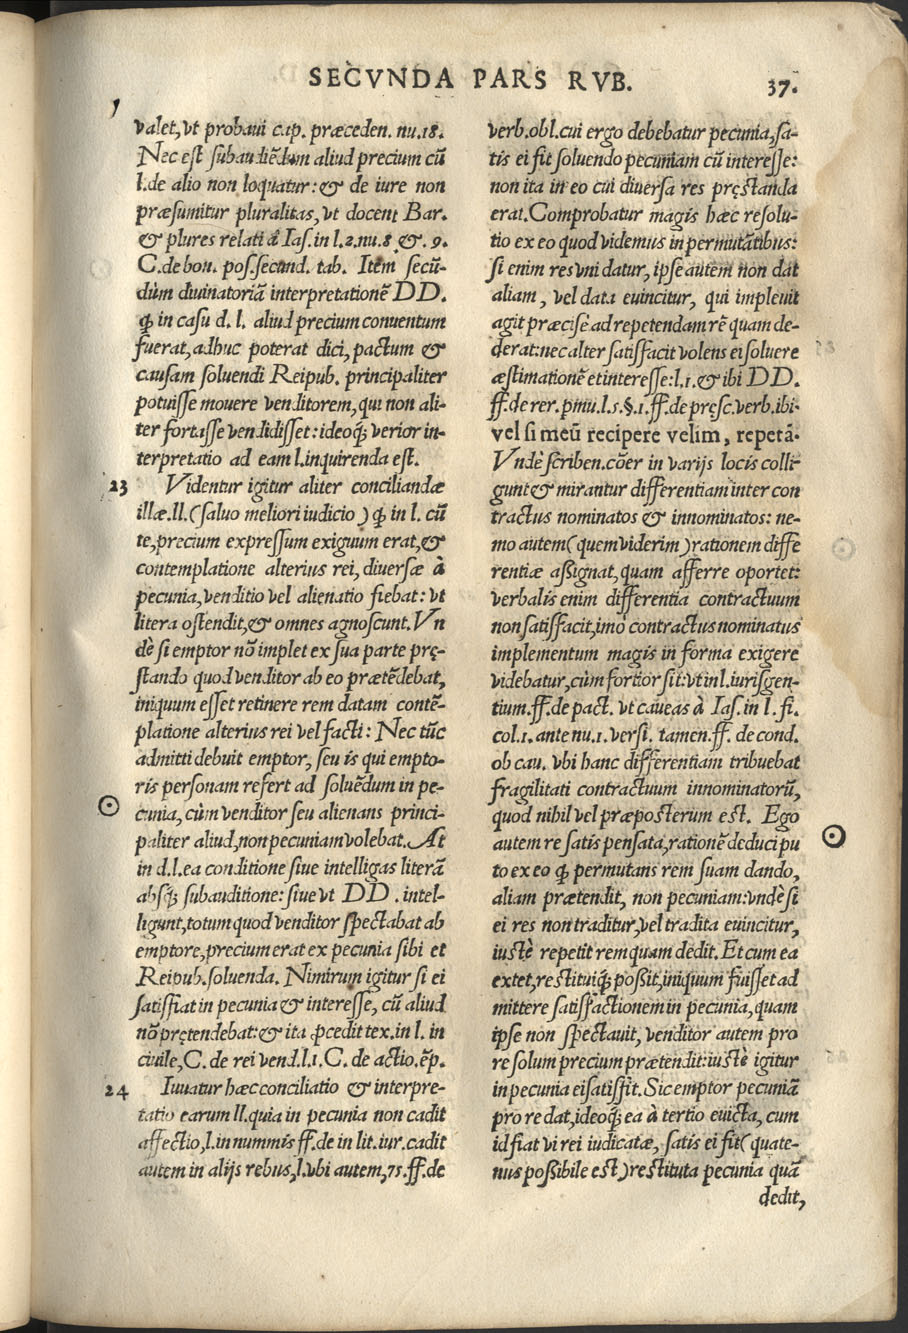 SECVNDA PARS RVB.
37.
valet, vt probaui cap. præceden. nu.18.
Nec est subaudiẽdum aliud precium cũ
l. de alio non loquatur: & de iure non
præsumitur pluralitas, vt docent Bar.
& plures relati à Ias. in l.2.nu.8 & .9.
C.de bon. pos.secund. tab. Item secũ-
dùm diuinatoriã interpretationẽ DD.
ꝙ in casu d. l. aliud precium conuentum
fuerat, adhuc poterat dici, pactum &
causam soluendi Reipub. principaliter
potuisse mouere venditorem, qui non ali-
ter fortasse vendidisset: ideoq; verior in-
terpretatio ad eam l. inquirenda est.
23 Videntur igitur aliter conciliandæ
illæ.ll. (saluo meliori iudicio) ꝙ in l. cũ
te, precium expressum exiguum erat, &
contemplatione alterius rei, diuersæ à
pecunia, venditio vel alienatio fiebat: vt
litera ostendit, & omnes agnoscunt. Vn
dè si emptor nõ implet ex sua parte prę-
stando quod venditor ab eo prætẽdebat,
iniquum esset retinere rem datam contẽ-
platione alterius rei vel facti: Nec tũc
admitti debuit emptor, seu is qui empto-
ris personam refert ad soluẽdum in pe-
cunia, cùm venditor seu alienans princi-
paliter aliud, non pecuniam volebat. At
in d.l. ea conditione siue intelligas literã
absq; subauditione: siue vt DD . intel-
ligunt, totum quod venditor spectabat ab
emptore, precium erat ex pecunia sibi et
Reipub. soluenda. Nimirum igitur si ei
satisfiat in pecunia & interesse, cũ aliud
nõ prętendebat: & ita ꝓcedit tex. in l. in
ciuile, C. de rei vend.l.1.C. de actio. ẽp.
24 Iuuatur hæc conciliatio & interpre-
tatio earum ll. quia in pecunia non cadit
affectio, l. in nummis ff. de in lit. iur. cadit
autem in alijs rebus, l. vbi autem, 75. ff. de
verb. obl. cui ergo debebatur pecunia, sa-
tis ei fit soluendo pecuniam cũ interesse:
non ita in eo cui diuersa res pręstanda
erat. Comprobatur magis hæc resolu-
tio ex eo quod videmus in permutãtibus:
si enim res vni datur, ipse autem non dat
aliam, vel data euincitur, qui impleuit
agit præcisè ad repetendam rẽ quam de-
derat: nec alter satisfacit volens ei soluere
æstimationẽ et interesse: l.1. & ibi DD.
ff. de rer. pmu. l.5.§.1. ff. de pręsc. verb. ibi.
vel si meũ recipere velim, repetã.
Vndè scriben. cõer in varijs locis colli-
gunt & mirantur differentiam inter con
tractus nominatos & innominatos: ne-
mo autem (quem viderim) rationem diffe
rentiæ aßignat, quam afferre oportet:
verbalis enim differentia contractuum
non satisfacit, imò contractus nominatus
implementum magis in forma exigere
videbatur, cùm fortior sit: vt in l. iurisgen-
tium. ff. de pact. vt caueas à Ias. in l. fi.
col.1. ante nu.1. versi. tamen. ff. de cond.
ob cau. vbi hanc differentiam tribuebat
fragilitati contractuum innominatorũ,
quod nihil vel præposterum est. Ego
autem re satis pensata, rationẽ deduci pu
to ex eo ꝙ permutans rem suam dando,
aliam prætendit, non pecuniam: vndè si
ei res non traditur, vel tradita euincitur,
iustè repetit rem quam dedit. Et cum ea
extet, restituiq; poßit, iniquum fuisset ad
mittere satisfactionem in pecunia, quam
ipse non spectauit, venditor autem pro
re solum precium prætendit: iustè igitur
in pecunia ei satisfit. Sic emptor pecuniã
pro re dat, ideoq; ea à tertio euicta, cum
id fiat vi rei iudicatæ, satis ei fit (quate-
nus poßibile est) restituta pecunia quã
dedit,